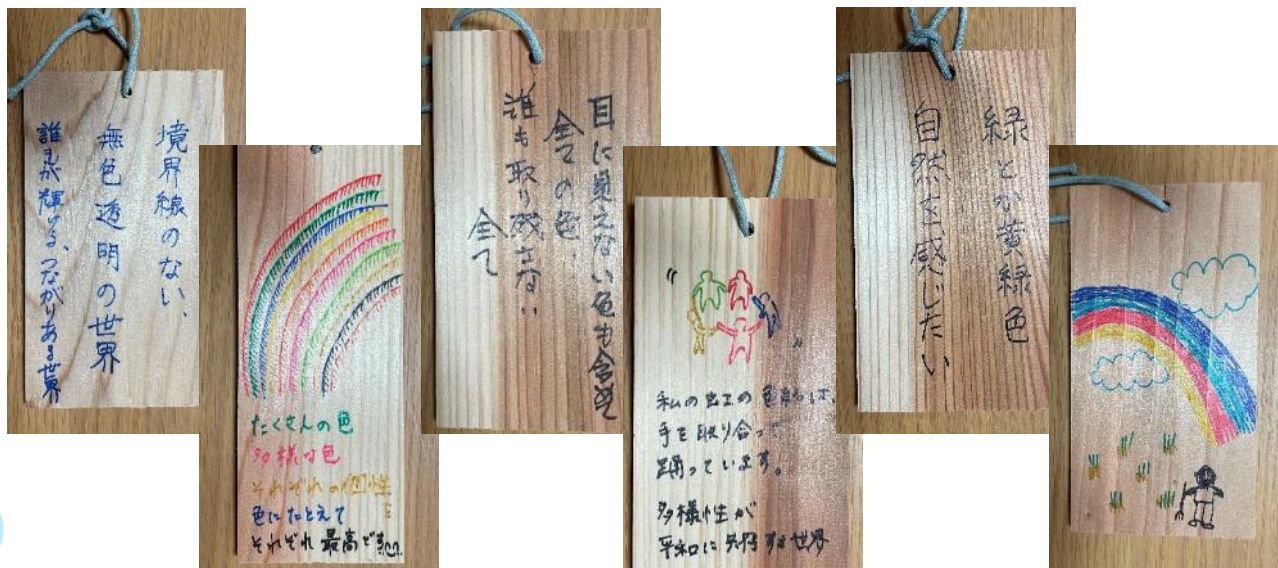 境界線のない、
無色透明の世界
誰もが輝る、つながりある世界
たくさんの色
多様な色
それぞれの個性を
色にたとえて
それぞれ最高です
目に見えない色も含めて
全ての色、
誰も取り残さない
全て
私の虹の色たちは、
手を取り合って
踊っています。
多様性が
平和に共存する世界
緑とか黄緑色
自然を感じたい